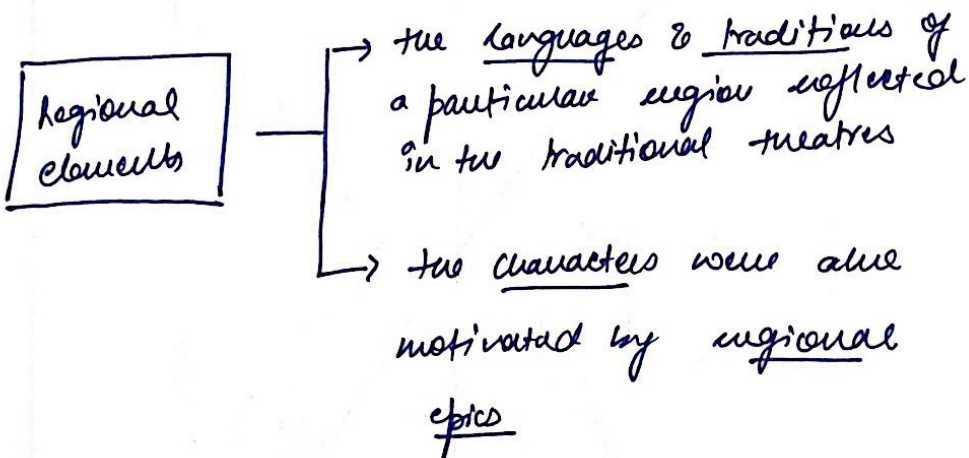 Regional
elements
→ the languages & traditions of
a particular region reflected
in the traditional theatres
→ the characters were also
motivated by regional
epics